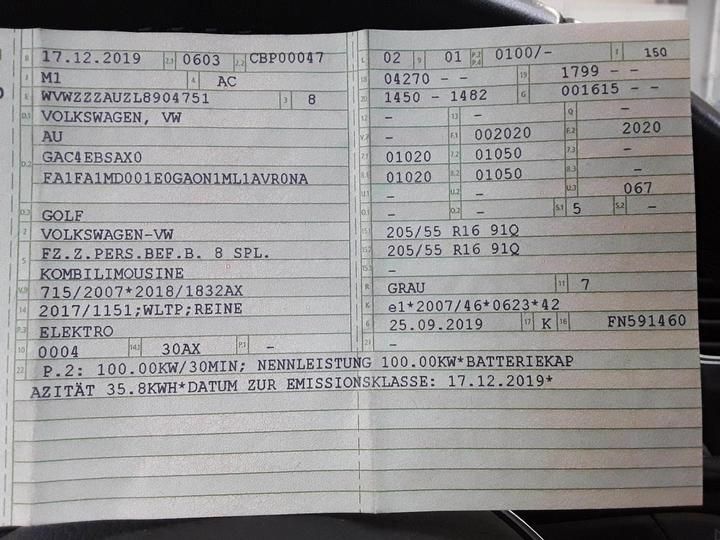 B 17.12.2019 2.1 0603 2.2 CBP00047
J M1 4 AC
E WVWZZZAUZL8904751 3 8
D.1 VOLKSWAGEN, VW
AU
D.2 GAC4EBSAX0
FA1FA1MD001E0GAON1ML1AVR0NA
D.3 GOLF
2 VOLKSWAGEN-VW
5 FZ.Z.PERS.BEF.B. 8 SPL.
KOMBILIMOUSINE
V.9 715/2007*2018/1832AX
14 2017/1151;WLTP;REINE
P.3 ELEKTRO
10 0004 14.1 30AX P.1 -
L 02 9 01 P.2 P.4 0100/- T 150
18 04270 - - 19 1799 - -
20 1450 - 1482 G 001615 - -
12 - 13 - Q -
V.7 - F.1 002020 F.2 2020
7.1 01020 7.2 01050 7.3 -
8.1 01020 8.2 01050 8.3 -
U.1 - U.2 - U.3 067
O.1 - O.2 - S.1 5 S.2 -
15.1 205/55 R16 91Q
15.2 205/55 R16 91Q
15.3 -
R GRAU 11 7
K e1*2007/46*0623*42
6 25.09.2019 17 K 16 FN591460
21 -
22 P.2: 100.00KW/30MIN; NENNLEISTUNG 100.00KW*BATTERIEKAP
AZITÄT 35.8KWH*DATUM ZUR EMISSIONSKLASSE: 17.12.2019*